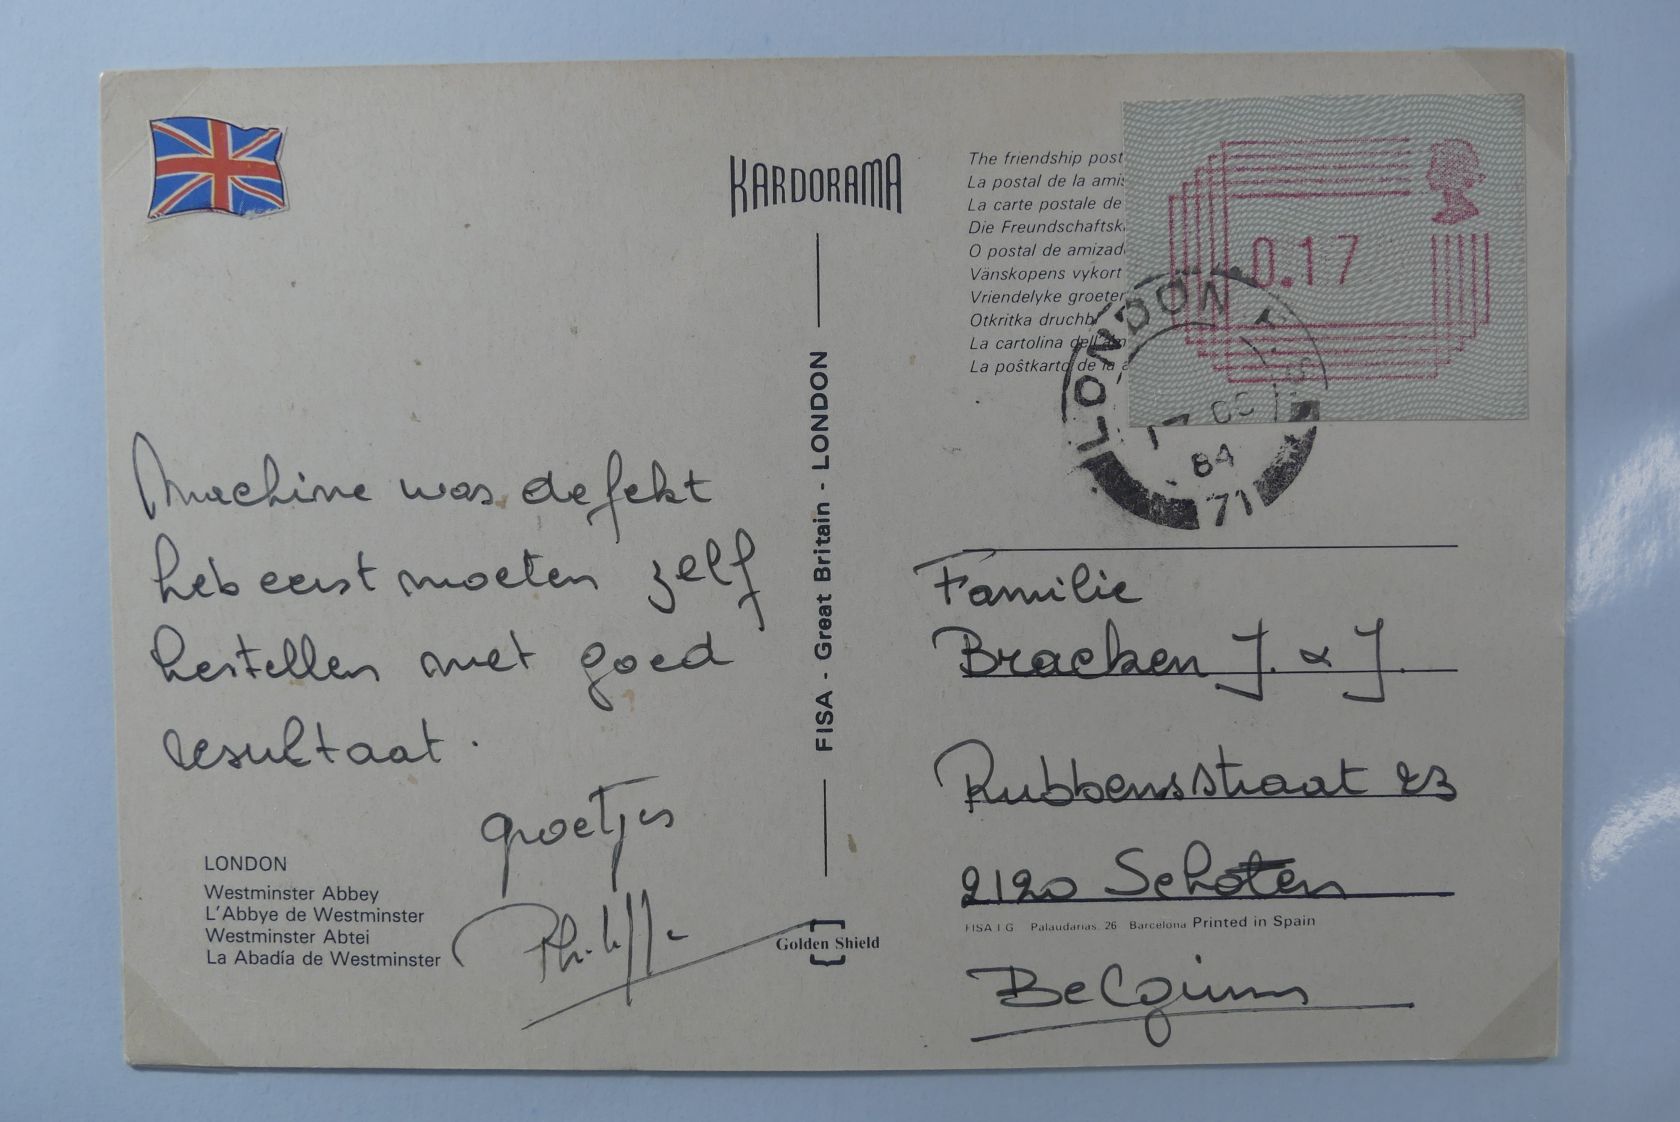 KARDORAMA
FISA - Great Britain - LONDON
The friendship post
La postal de la amis
La carte postale de
Die Freundschaftsk
O postal de amizad
Vänskopens vykort
Vriendelyke groeten
Otkritka druchb
La cartolina dell'am
La poŝtkarto de la a
0.17
LONDON
17 OC
84
71
Machine was defekt
heb eerst moeten zelf
herstellen met goed
resultaat.
groetjes
Philippe
LONDON
Westminster Abbey
L'Abbye de Westminster
Westminster Abtei
La Abadía de Westminster
Golden Shield
Familie
Bracken J. & J.
Rubbensstraat 23
2120 Schoten
FISA I.G. Palaudarias, 26 Barcelona Printed in Spain
Belgium